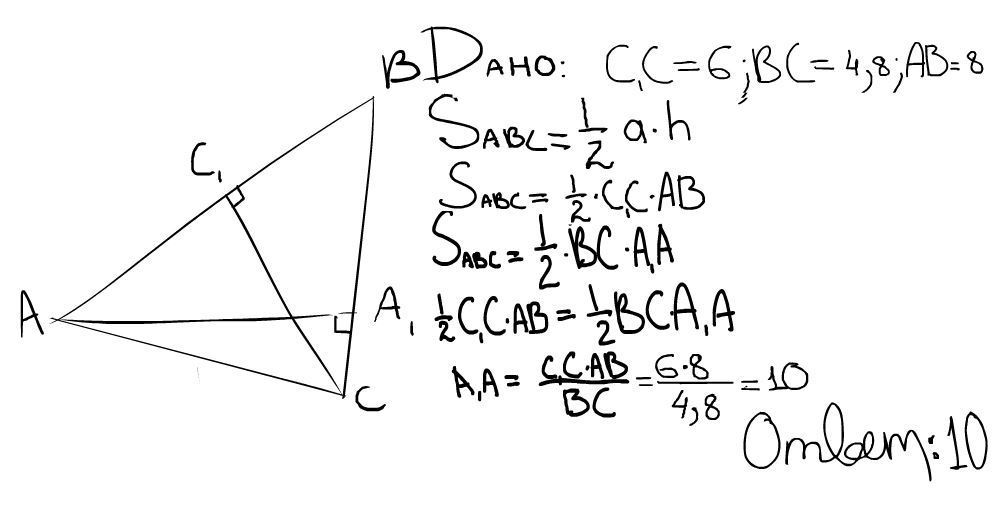 B
Дано: C₁C = 6; BC = 4,8; AB = 8
S_ABC = 1/2 a · h
C₁
S_ABC = 1/2 · C₁C · AB
S_ABC = 1/2 · BC · A₁A
A
A₁
1/2 C₁C · AB = 1/2 BC A₁A
A₁A = C₁C · AB / BC = 6 · 8 / 4,8 = 10
C
Ответ: 10